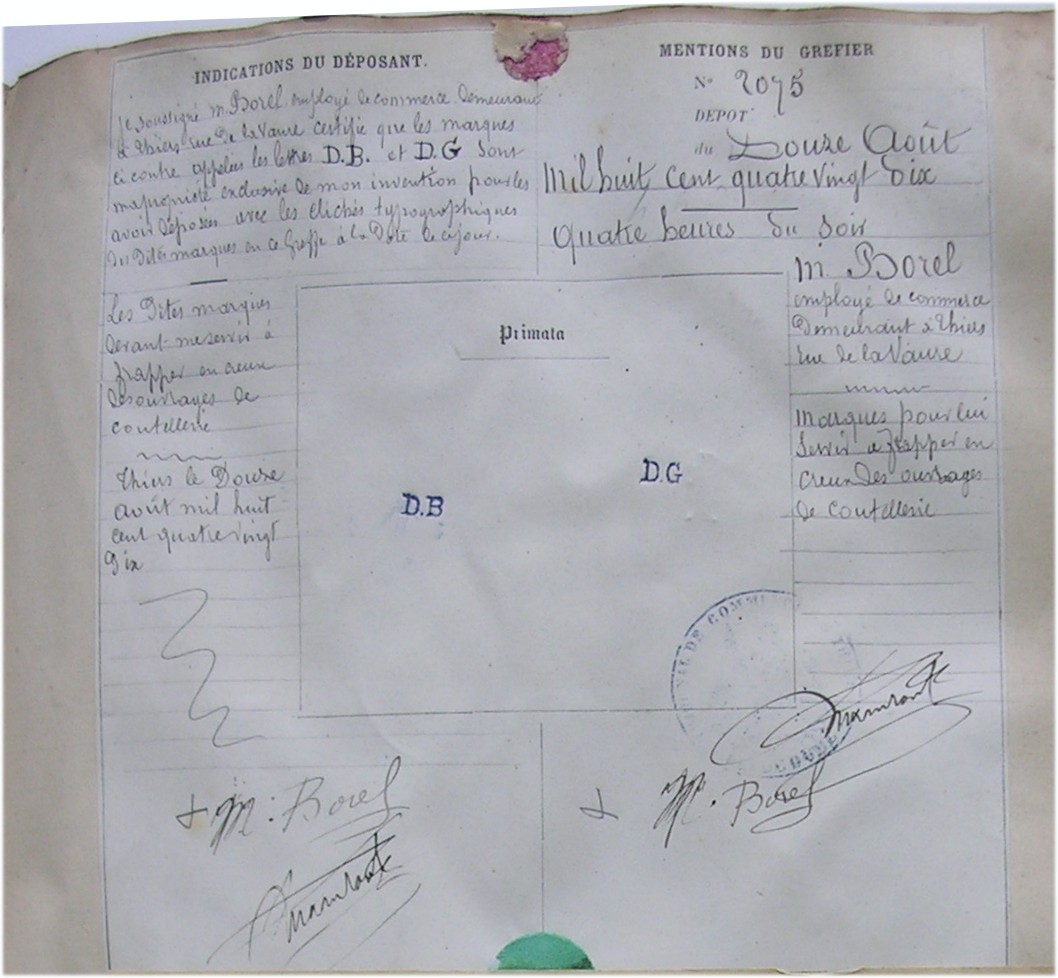 INDICATIONS DU DÉPOSANT.
je soussigné M. Borel employé de commerce demeurant
à Thiers rue de la Vaure certifie que les marques
ci contre appelées les lettres D.B. et D.G sont
ma propriété exclusive de mon invention pour les
avoir déposées avec les clichés typographiques
des dites marques en ce Greffe à la Date de ce jour.
Les Dites marques
devant me servir à
frapper en creux
des ouvrages de
coutellerie
Thiers le Douze
août mil huit
cent quatre vingt
Dix
MENTIONS DU GREFIER
N° 2075
DEPOT
du Douze Août
Mil huit cent quatre vingt dix
quatre heures du soir
M. Borel
employé de commerce
Demeurant à Thiers
rue de la Vaure
Marques pour lui
servir à frapper en
creux des ouvrages
de coutellerie
Primata
D.B
D.G
DE COMM
M. Borel
M. Borel